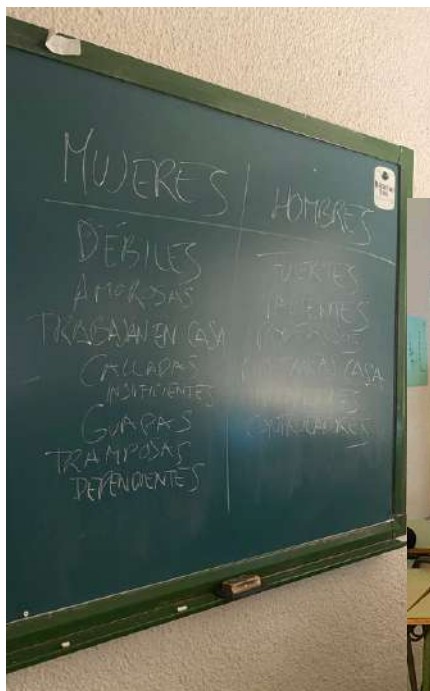 MUJERES
DÉBILES
AMOROSAS
TRABAJAN EN CASA
CALLADAS
INSUFICIENTES
GUAPAS
TRAMPOSAS
DEPENDIENTES
HOMBRES
FUERTES
VALIENTES
CASA